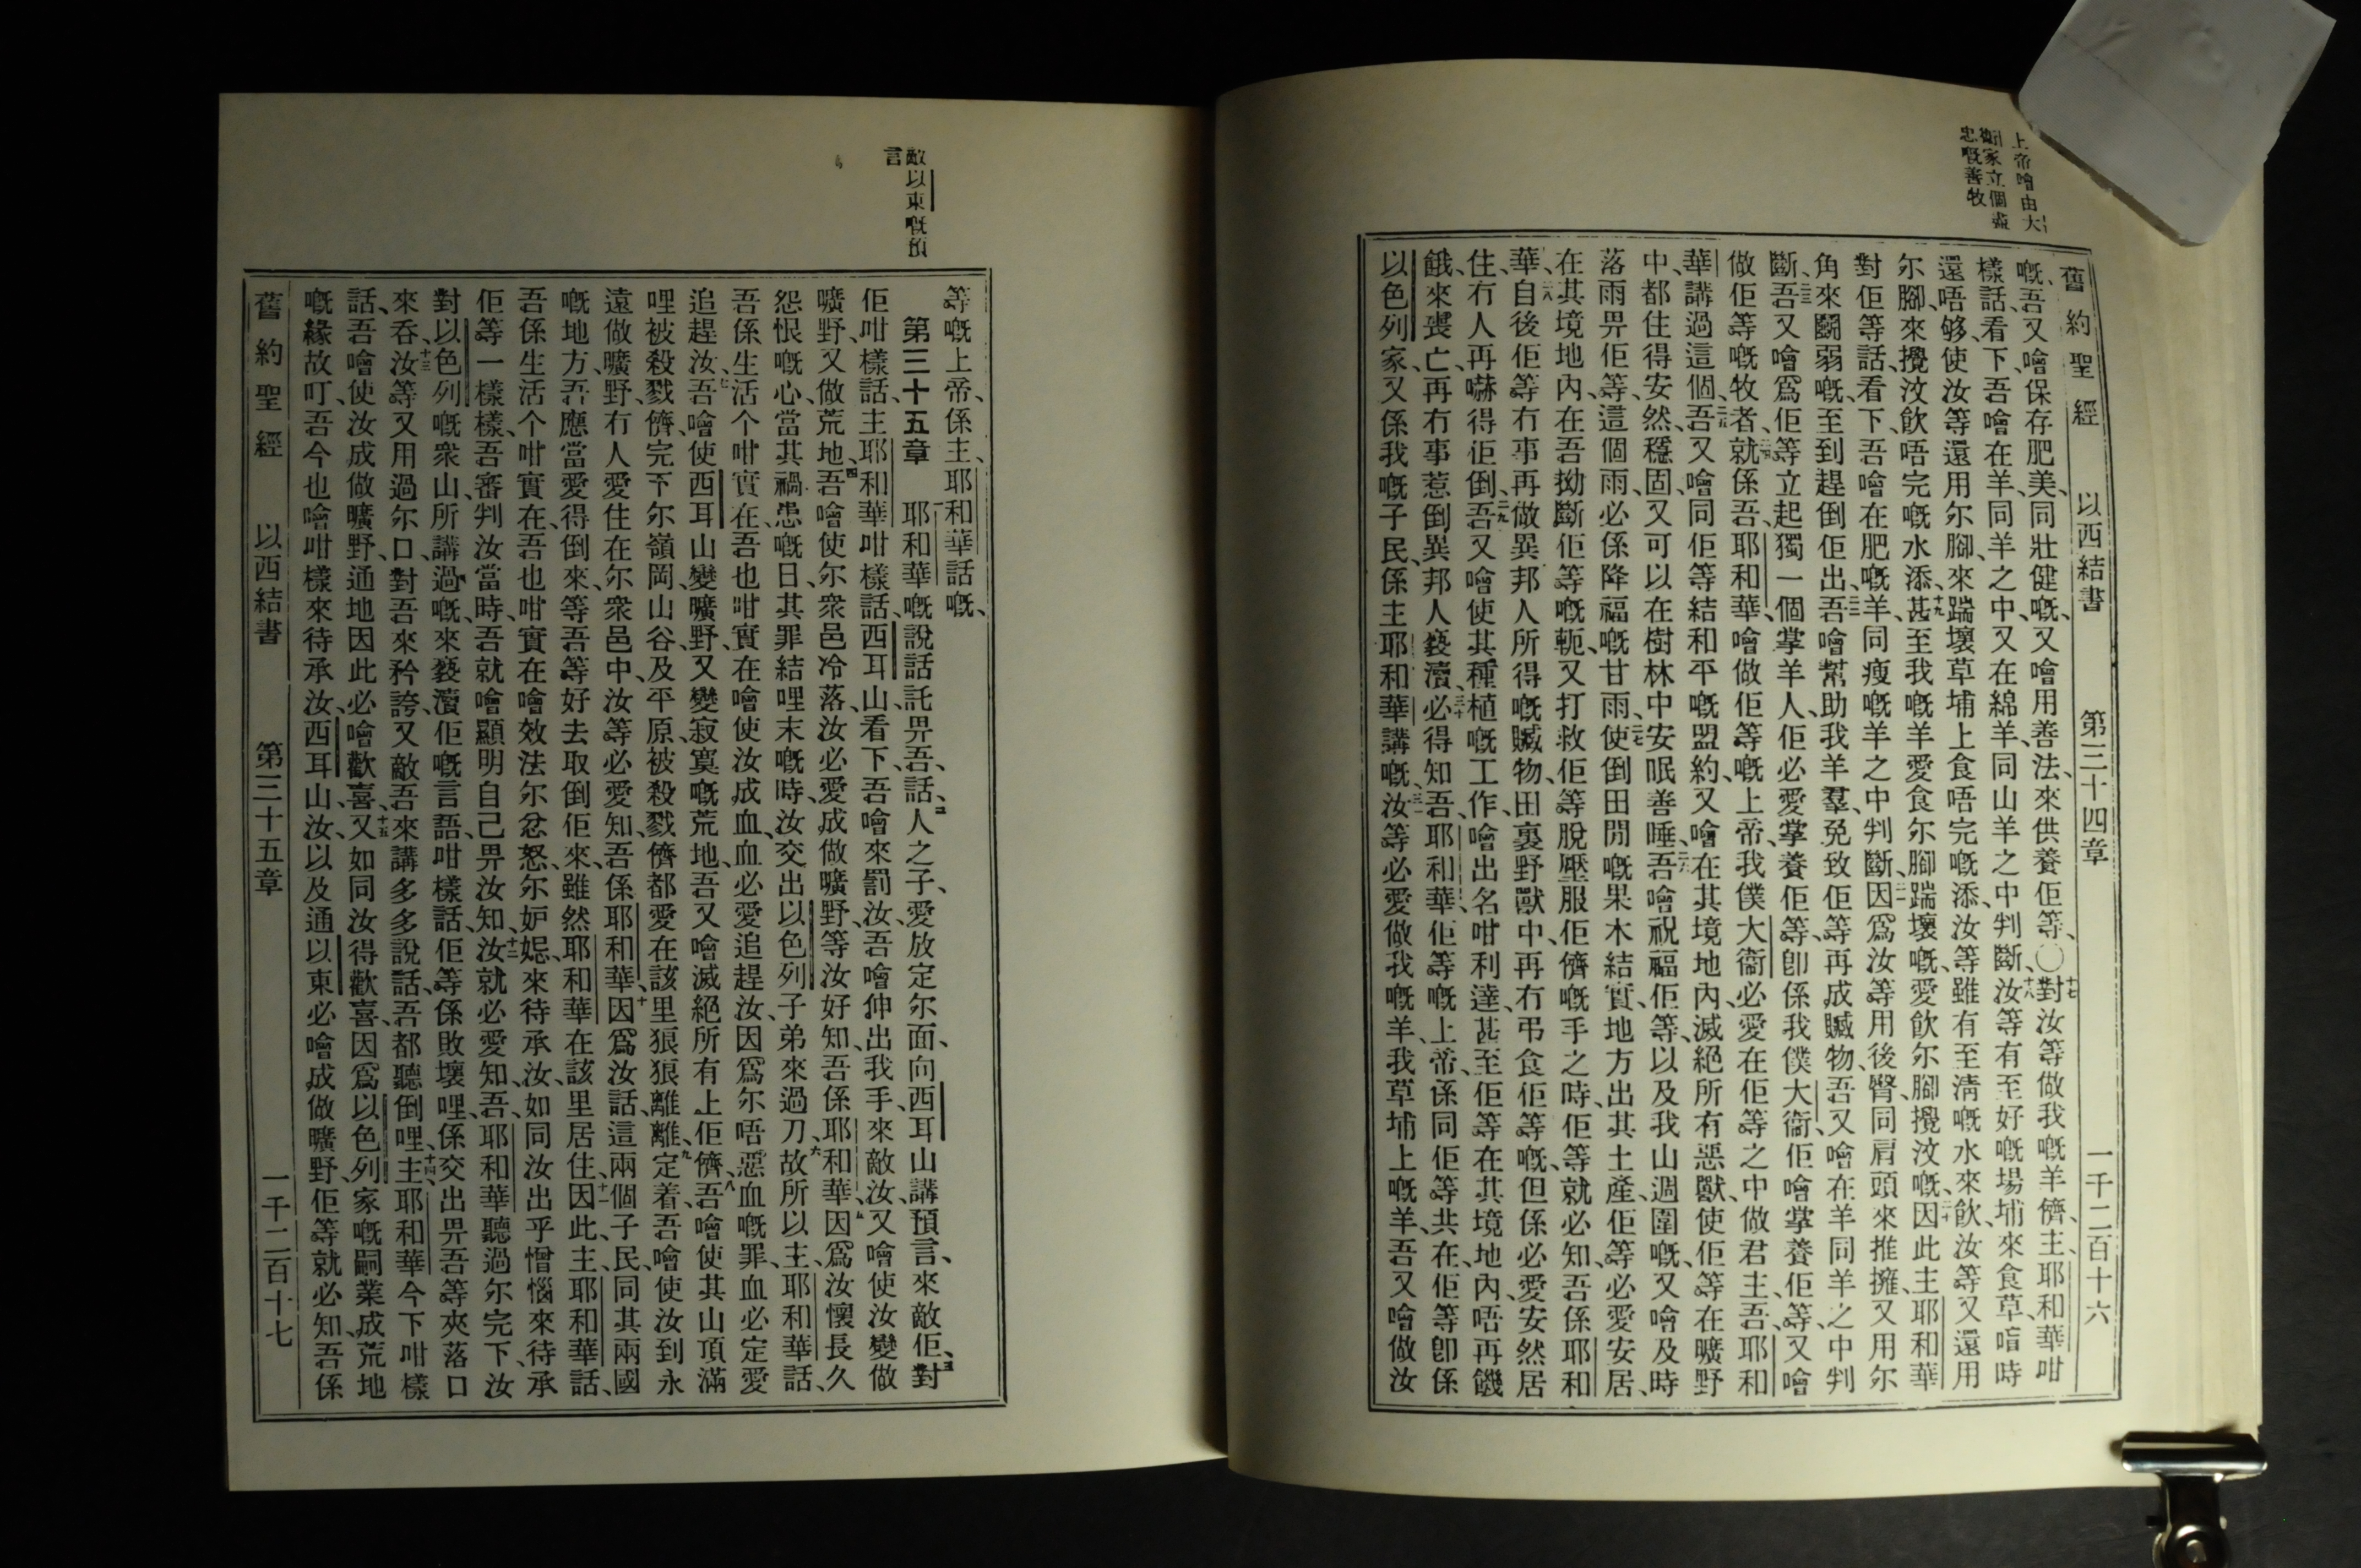 舊約聖經 以西結書 第三十四章 一千二百十六
嘅、吾又噲保存肥美、同壯健嘅、又噲用善法、來供養佢等、〇十七對汝等做我嘅羊儕、主、耶和華咁
樣話、看下、吾噲在羊、同羊之中、又在綿羊、同山羊之中判斷、十八汝等有至好嘅場埔來食草、時
還唔够、使汝等還用尔腳、來踹壞草埔上食唔完嘅添、汝等雖有至淸嘅水來飲、汝等又還用
尔腳、來攪汶飮唔完嘅水添、十九甚至我嘅羊愛食尔腳踹壞嘅、愛飮尔腳攪汶嘅、二十因此主耶和華
對佢等話、看下、吾噲在肥嘅羊、同瘦嘅羊之中判斷、二一因爲汝等用後臀同肩頭來推擁、又用尔
角來鬭弱嘅、至到趕倒佢出、二二吾噲幫助我羊羣、免致佢等再成贓物、吾又噲在羊同羊之中判
斷、二三吾又噲爲佢等立起獨一個掌羊人、佢必愛掌養佢等、卽係我僕大衞、佢噲掌養佢等、又噲
做佢等嘅牧者、二四就係吾、耶和華、噲做佢等嘅上帝、我僕大衞必愛在佢等之中做君主、吾、耶和
華講過這個、二五吾又噲同佢等結和平嘅盟約、又噲在其境地內、滅絕所有惡獸、使佢等在曠野
中、都住得安然、穩固、又可以在樹林中安眠善睡、二六吾噲祝福佢等、以及我山週圍嘅、又噲及時
落雨畀佢等、這個雨、必係降福嘅甘雨、二七使倒田閒嘅果木結實、地方出其土產、佢等必愛安居、
在其境地內、在吾拗斷佢等嘅軛、又打救佢等脫壓服佢儕嘅手之時、佢等就必知吾係耶和
華、二八自後佢等冇事再做異邦人所得嘅贓物、田裏野獸中、再冇弔食佢等嘅、但係必愛安然居
住、冇人再嚇得佢倒、二九吾又噲使其種植嘅工作、噲出名咁利達、甚至佢等在其境地內、唔再饑
餓、來喪亡、再冇事惹倒異邦人褻瀆、三十必得知吾、耶和華、佢等嘅上帝、係同佢等共在、佢等卽係
以色列家、又係我嘅子民、係主耶和華講嘅、三一汝等必愛做我嘅羊、我草埔上嘅羊、吾又噲做汝
敵以東嘅預
言
等嘅上帝、係主、耶和華話嘅、
第三十五章 耶和華嘅說話託畀吾、話、二人之子、愛放定尔面、向西耳山講預言、來敵佢、三對
佢咁樣話、主耶和華咁樣話、西耳山、看下、吾噲來罰汝、吾噲伸出我手、來敵汝、又噲使汝變做
曠野、又做荒地、四吾噲使尔衆邑冷落、汝必愛成做曠野、等汝好知、吾係耶和華、五因爲汝懷長久
怨恨嘅心、當其禍患嘅日、其罪結哩末嘅時、汝交出以色列子弟來過刀、六故所以主、耶和華話、
吾係生活个咁實在、吾也咁實在噲使汝成血、血必愛追趕汝、因爲尔唔惡血嘅罪、血必定愛
追趕汝、七吾噲使西耳山變曠野、又變寂寞嘅荒地、吾又噲滅絕所有上佢儕、八吾噲使其山頂滿
哩被殺戮儕、完下尔嶺岡、山谷、及平原、被殺戮儕都愛在該里狼狼離離、九定着吾噲使汝到永
遠做曠野、冇人愛住在尔衆邑中、汝等必愛知、吾係耶和華、十因爲汝話、這兩個子民、同其兩國
嘅地方、吾應當愛得倒來、等吾等好去取倒佢來、雖然耶和華在該里居住、十一因此、主、耶和華話、
吾係生活个咁實在、吾也咁實在噲效法尔忿怒、尔妒𡞲、來待承汝、如同汝出乎憎惱來待承
佢等一樣樣、吾審判汝當時、吾就噲顯明自己畀汝知、十二汝就必愛知、吾、耶和華聽過尔完下、汝
對以色列嘅衆山、所講過嘅、來褻瀆佢嘅言語、咁樣話、佢等係敗壞哩、係交出畀吾等夾落口
來吞、十三汝等又用過尔口、對吾來矜誇、又敵吾來講多多說話、吾都聽倒哩、十四主、耶和華今下咁樣
話、吾噲使汝成做曠野、通地因此必噲歡喜、十五又如同汝得歡喜、因爲以色列家嘅嗣業成荒地
嘅緣故、叮吾今也噲咁樣來待承汝、西耳山、汝、以及通以東必噲成做曠野、佢等就必知、吾係
舊約聖經 以西結書 第三十五章 一千二百十七